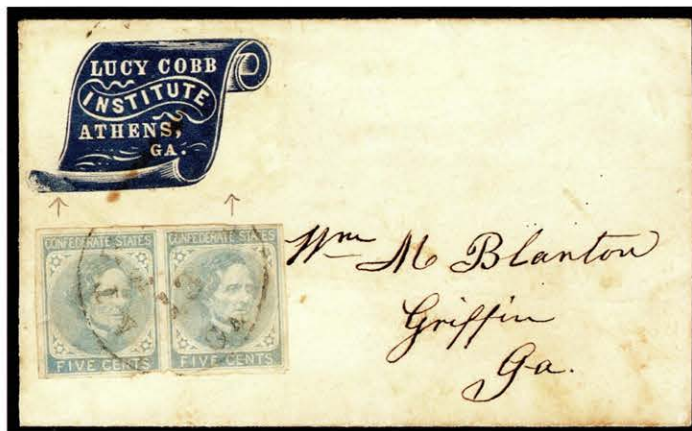 LUCY COBB
INSTITUTE
ATHENS,
GA.
CONFEDERATE STATES
CONFEDERATE STATES
FIVE CENTS
FIVE CENTS
Wm M Blanton
Griffin
Ga.